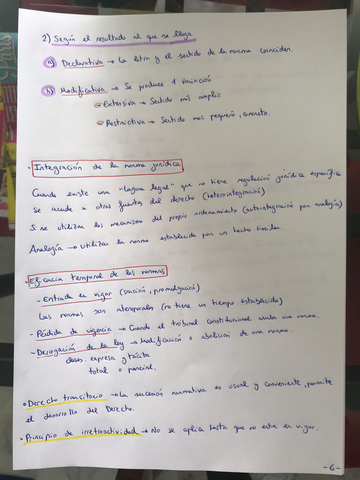 2) Según el resultado al que se llega
a) Declarativa → La letra y el sentido de la norma coinciden.
b) Modificativa → Se produce 1 variación
Extensiva → Sentido más amplio
Restrictiva → Sentido más pequeño, concreto.
· Integración de la norma jurídica
Cuando existe una "laguna legal" que no tiene regulación jurídica específica
Se acude a otras fuentes del derecho (heterointegración)
Si se utilizan los mecanismos del propio ordenamiento (autointegración por analogía)
Analogía → Utilizar la norma establecida por un hecho similar.
· Eficacia temporal de las normas
- Entrada en vigor (sanción, promulgación)
Las normas son intemporales (no tiene un tiempo establecido)
- Pérdida de vigencia → Cuando el tribunal constitucional anula una norma.
- Derogación de la ley → Modificación o abolición de una norma.
clases: expresa y tácita
total o parcial.
· Derecho transitorio → La sucesión normativa es usual y conveniente, permite
el desarrollo del Derecho.
· Principio de irretroactividad → No se aplica hasta que no entre en vigor.
-6-